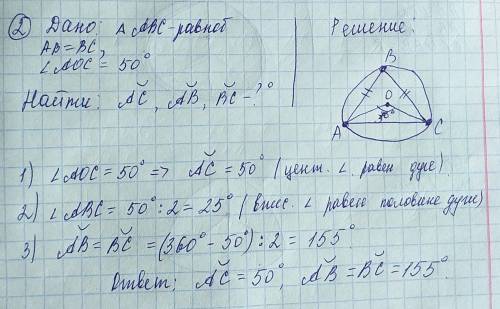 ② Дано: △ ABC-равноб
AB=BC,
∠AOC = 50°
Найти: A͝C, A͝B, B͝C-?°
Решение:
B
O
50°
A
C
1) ∠AOC = 50° => A͝C = 50° (цент. ∠ равен дуге)
2) ∠ABC = 50° : 2 = 25° (впис. ∠ равен половине дуги)
3) A͝B = B͝C = (360° - 50°) : 2 = 155°
Ответ: A͝C = 50°, A͝B = B͝C = 155°